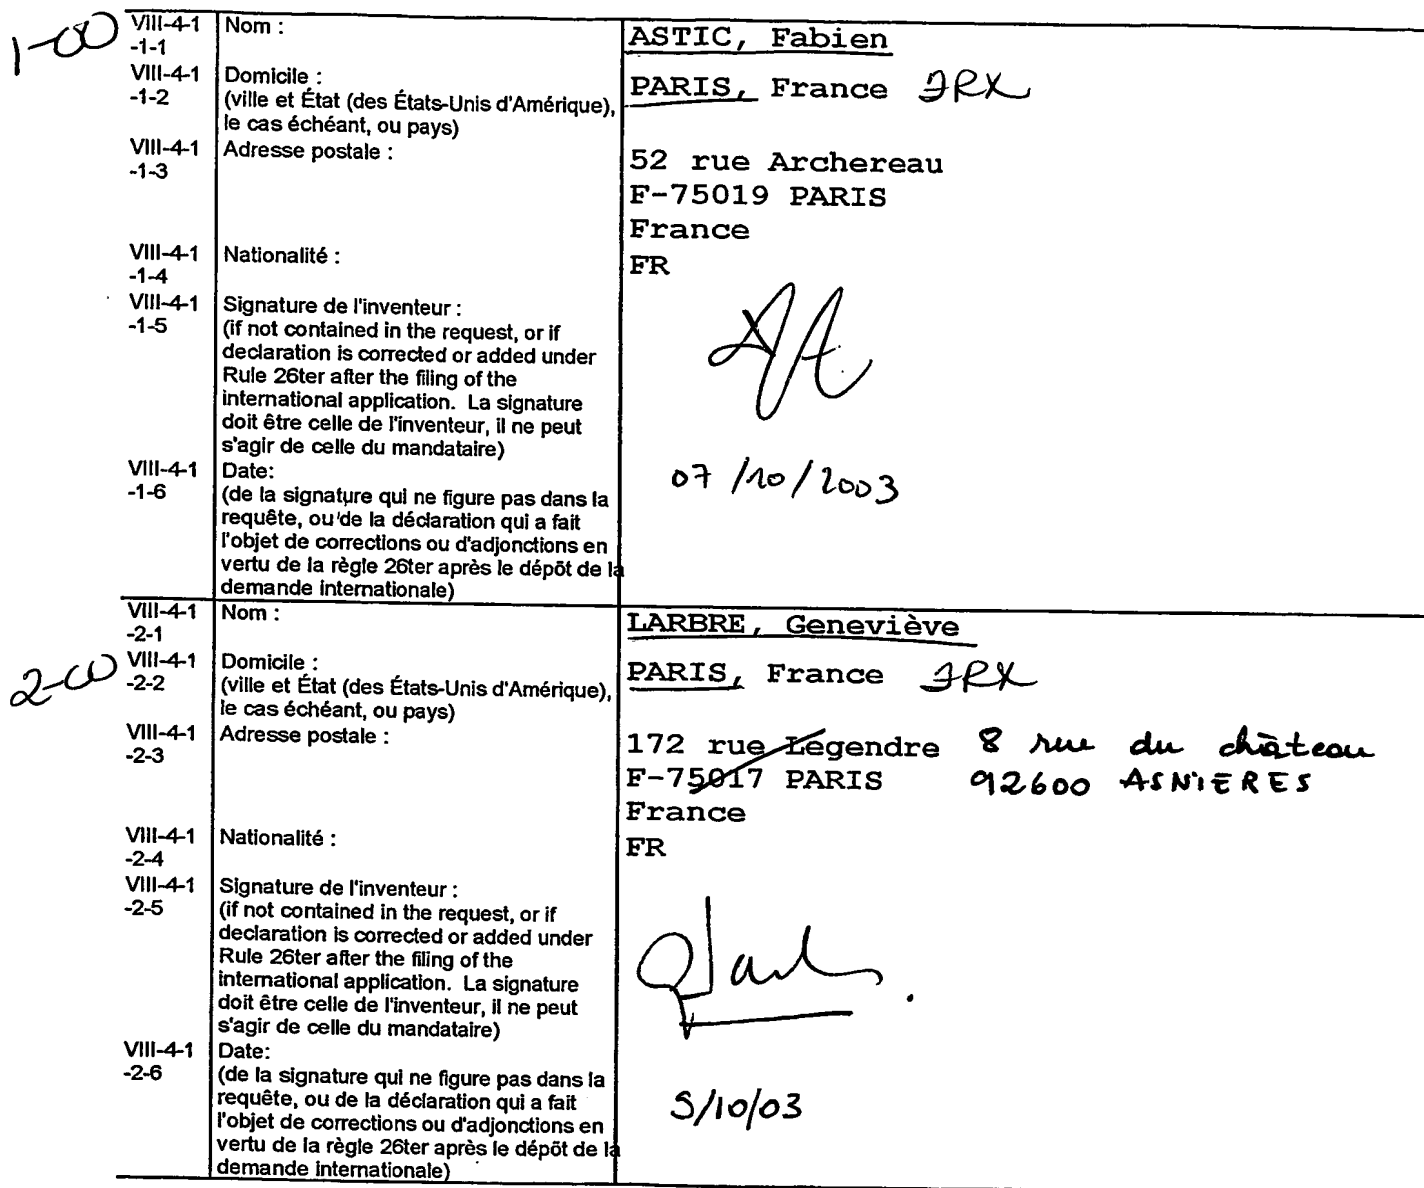 1-00
VIII-4-1 Nom : ASTIC, Fabien
-1-1
VIII-4-1 Domicile : PARIS, France FRX
-1-2 (ville et État (des États-Unis d'Amérique),
le cas échéant, ou pays)
VIII-4-1 Adresse postale : 52 rue Archereau
-1-3 F-75019 PARIS
France
VIII-4-1 Nationalité : FR
-1-4
VIII-4-1 Signature de l'inventeur :
-1-5 (if not contained in the request, or if
declaration is corrected or added under
Rule 26ter after the filing of the
international application. La signature
doit être celle de l'inventeur, il ne peut
s'agir de celle du mandataire)
VIII-4-1 Date: 07/10/2003
-1-6 (de la signature qui ne figure pas dans la
requête, ou de la déclaration qui a fait
l'objet de corrections ou d'adjonctions en
vertu de la règle 26ter après le dépôt de la
demande internationale)
VIII-4-1 Nom : LARBRE, Geneviève
-2-1
2-00
VIII-4-1 Domicile : PARIS, France FRX
-2-2 (ville et État (des États-Unis d'Amérique),
le cas échéant, ou pays)
VIII-4-1 Adresse postale : 172 rue Legendre 8 rue du château
-2-3 F-75017 PARIS 92600 ASNIERES
France
VIII-4-1 Nationalité : FR
-2-4
VIII-4-1 Signature de l'inventeur :
-2-5 (if not contained in the request, or if
declaration is corrected or added under
Rule 26ter after the filing of the
international application. La signature
doit être celle de l'inventeur, il ne peut
s'agir de celle du mandataire)
VIII-4-1 Date:
-2-6 (de la signature qui ne figure pas dans la
requête, ou de la déclaration qui a fait
l'objet de corrections ou d'adjonctions en
vertu de la règle 26ter après le dépôt de la
demande internationale)